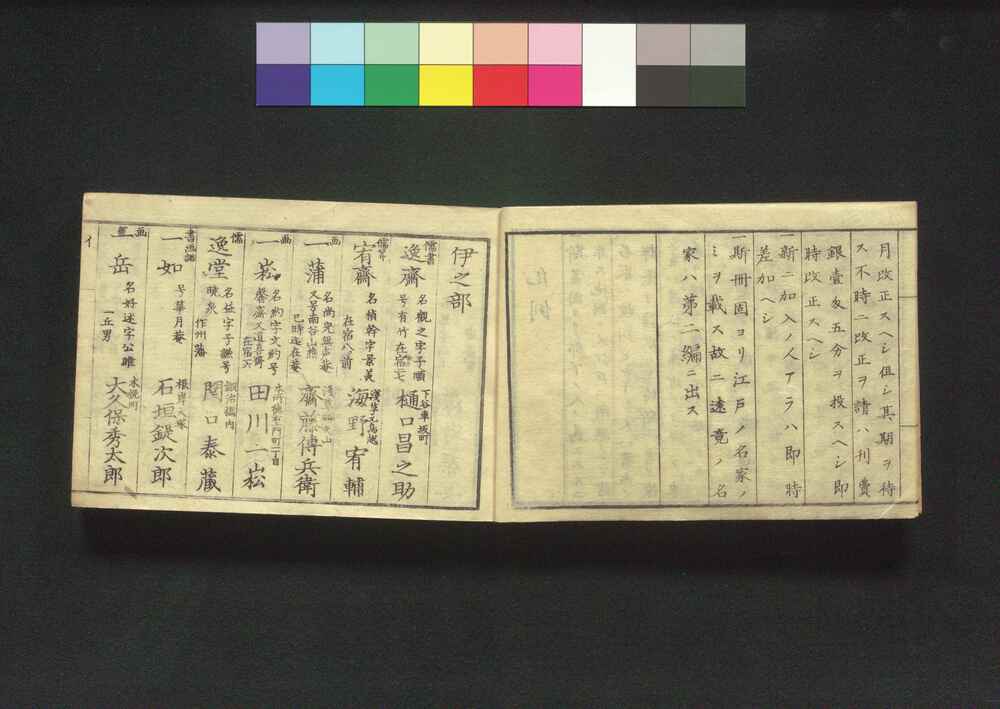 月改正スヘシ但シ其期ヲ待
ス不時ニ改正ヲ請ハ刊費
銀壹匁五分ヲ投スヘシ即
時改正スヘシ
一新ニ加入ノ人アラハ即時
差加ヘシ
一斯冊固ヨリ江戸ノ名家ノ
ミヲ載ス故ニ遠境ノ名
家ハ第二編ニ出ス
伊之部
儒書
逸齋
名觀之字子順
号有竹在宿
下谷車坂町
樋口昌之助
宥齋
名楨幹字景羲
在宿八前
淺草元鳥越
海野宥輔
画
一蒲
名尚
又号雨谷山樵
巳時迄在菴
齋藤傳兵衛
画
一崧
名約字文約号
馨齋又道喜齋
在宿
田川二崧
儒
逸堂
名益字子謙号
暁泉
作州藩
鍜冶橋内
関口泰藏
書画詩
一如
号華月菴
根岸
石垣鍉次郎
画
一岳
名好述字公雎
一丘男
木挽町
大久保秀太郎
イ